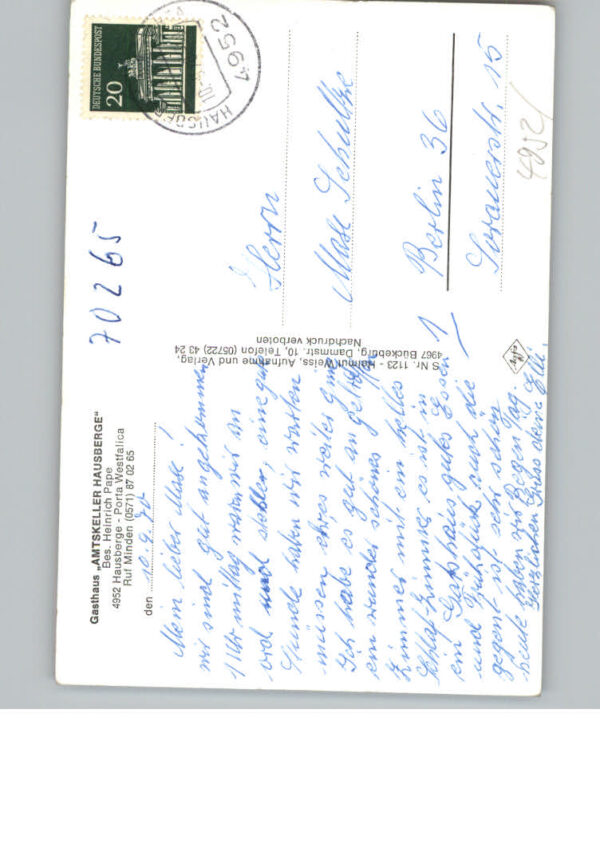 Gasthaus „AMTSKELLER HAUSBERGE"
Bes. Heinrich Pape
4952 Hausberge - Porta Westfalica
Ruf Minden (0571) 87 02 65
den 10.9.
Mein lieber Maxe!
wir sind gut angekommen
1 Uhr mittag waren wir an
ord und stelle, eine gute
Stunde haben wir warten
müssen ehe es weiter ging
Ich habe es gut an getroffen
ein wunder schönes
Zimmer mit ein helles
Schlaf-zimmer es ist in
ein Gasthaus gutes Essen
und Frühstück auch die
gegent ist sehr schön
heute haben wir Regen Tag
Herzlichen Gruss deine Elli.
70265
S Nr. 1123 - Helmut Weiss, Aufnahme und Verlag,
4967 Bückeburg, Dammstr. 10, Telefon (05722) 43 24
Nachdruck verboten
DEUTSCHE BUNDESPOST
20
4952
HAUSBERGE
Herrn
Maxe Schultze
1 Berlin 36
Sorauerstr. 15
4952/